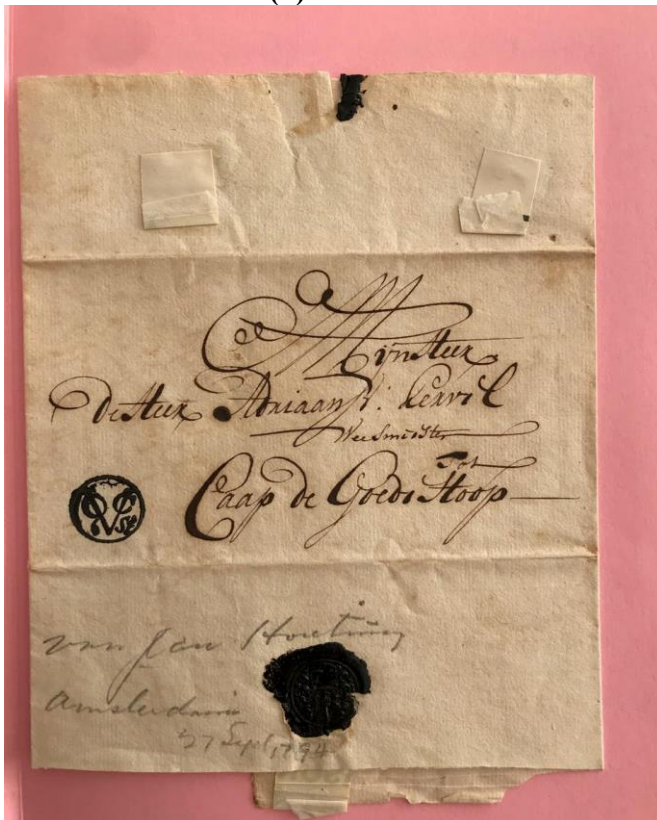 Mijn Heer
De Heer Adriaan V: Kervel
Weesmeester
Tot
Caap de Goede Hoop
van Jan
Amsterdam
27 Sept 1794